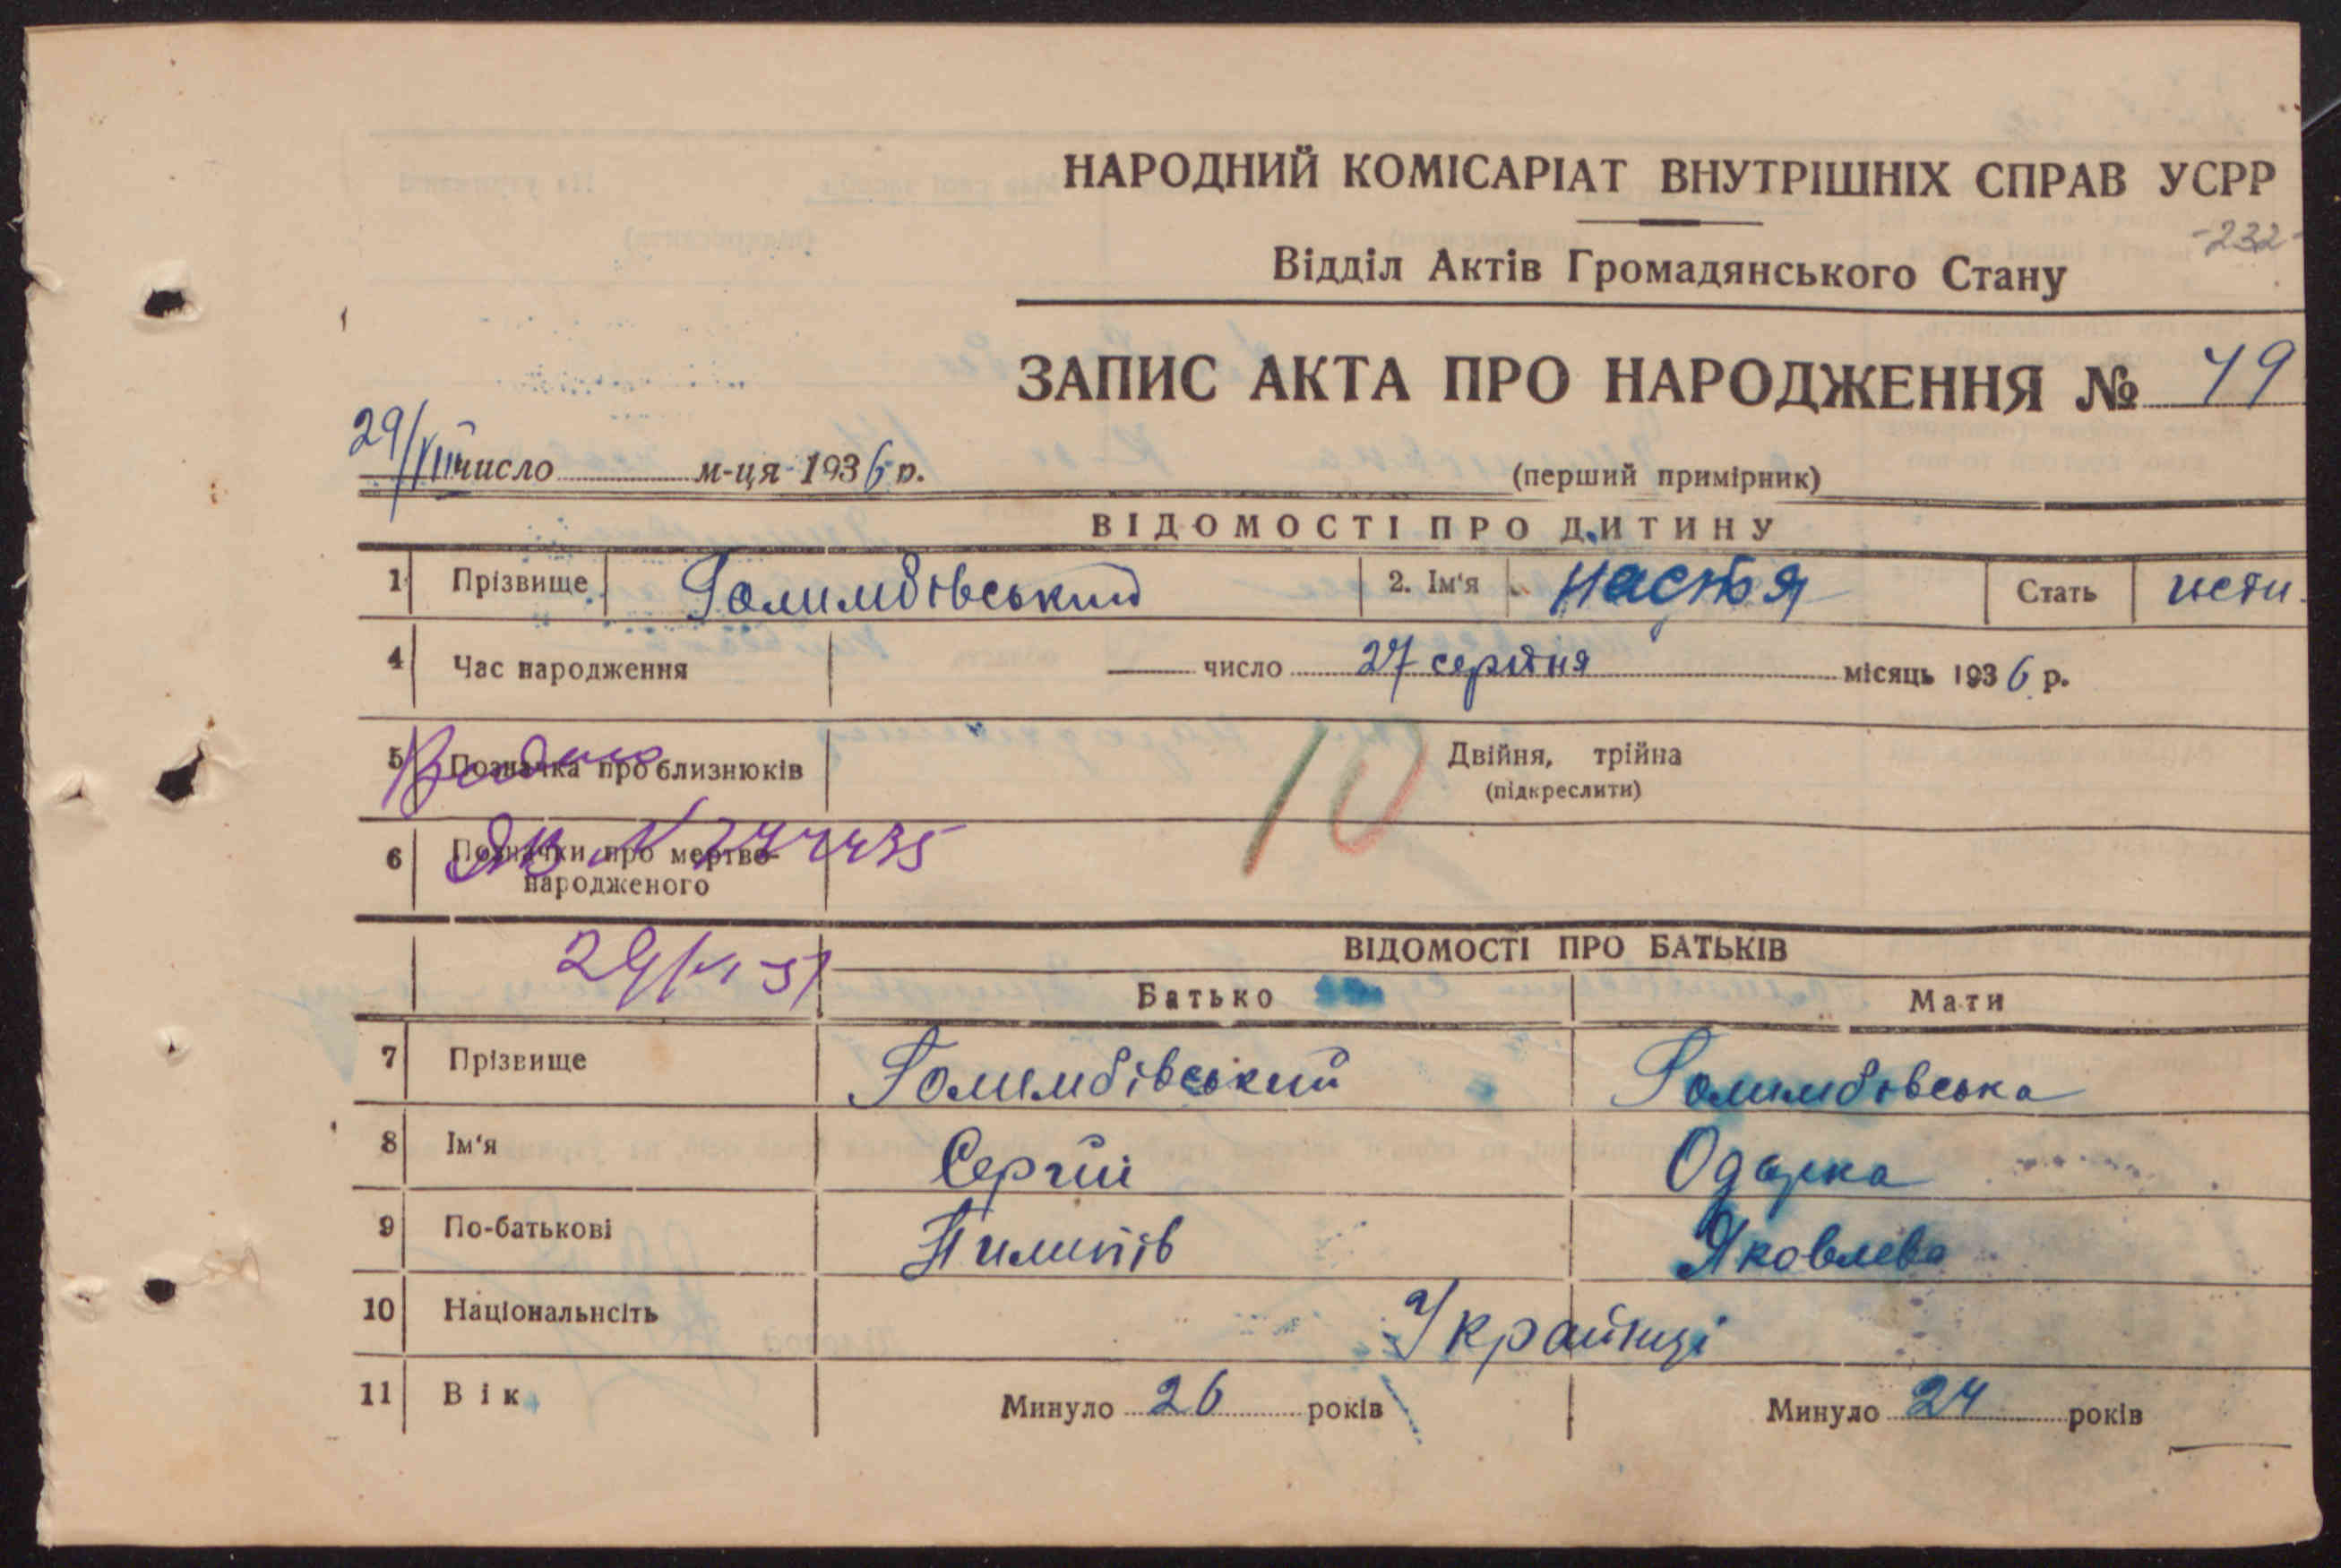 НАРОДНИЙ КОМІСАРІАТ ВНУТРІШНІХ СПРАВ УСРР
-232-
Відділ Актів Громадянського Стану
ЗАПИС АКТА ПРО НАРОДЖЕННЯ № 49
29/VIII число м-ця 1936 р. (перший примірник)
ВІДОМОСТІ ПРО ДИТИНУ
1 Прізвище Голимбівський 2. Ім'я Настя Стать
4 Час народження число 27 серпня місяць 1936 р.
5 Позначка про близнюків Двійня, трійна
(підкреслити)
10
6 Позначки про мертво-
народженого
ВІДОМОСТІ ПРО БАТЬКІВ
Батько Мати
7 Прізвище Голимбівський Голимбівська
8 Ім'я Сергій Одарка
9 По-батькові Пилипів Яковлева
10 Національнсіть Українці
11 Вік Минуло 26 років Минуло 24 років